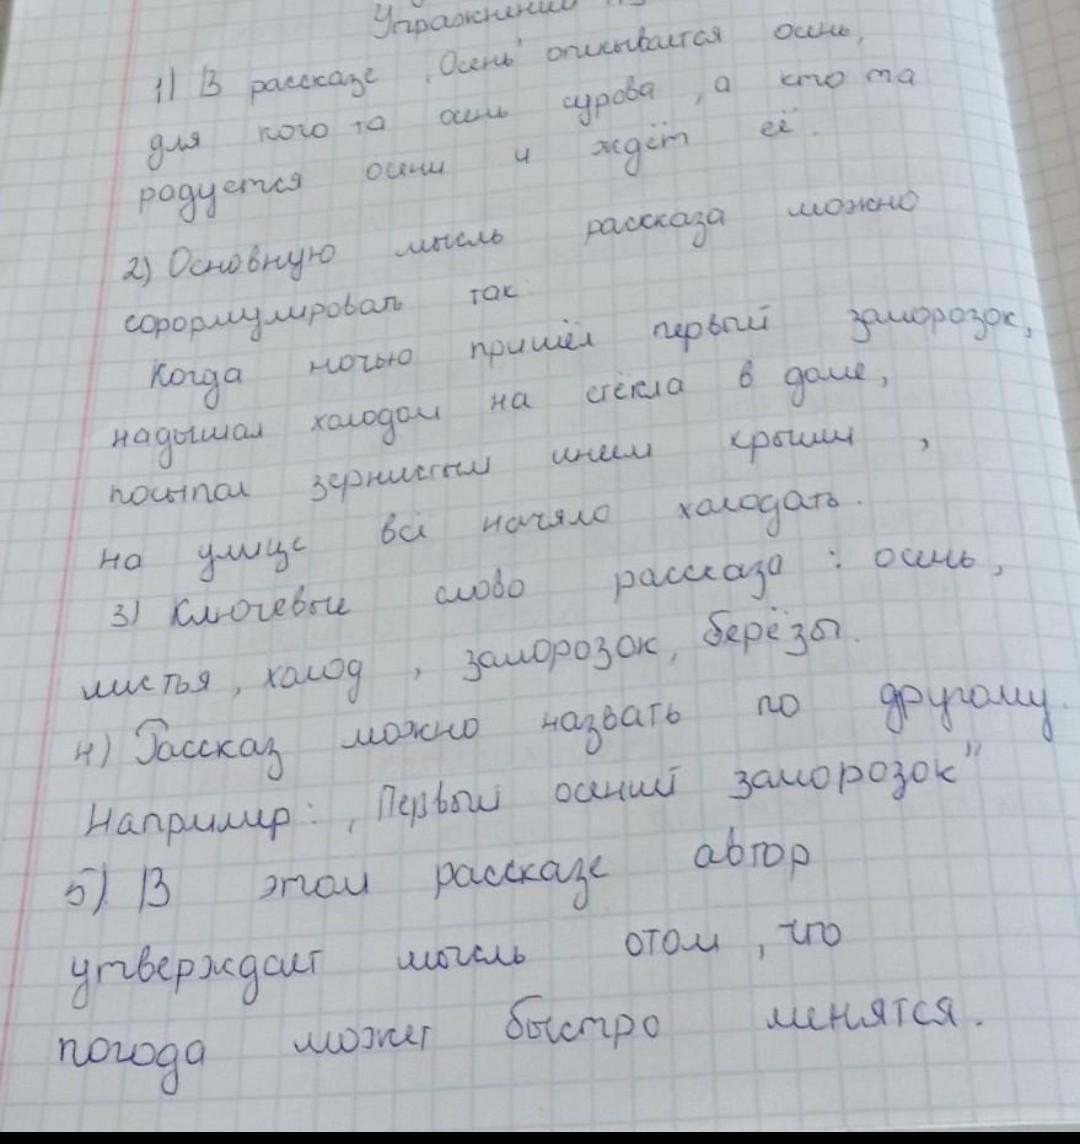 Упражнение
1) В рассказе „Осень" описывается осень,
для кого то осень сурова, а кто та
радуется осени и ждёт её.
2) Основную мысль рассказа можно
сформулировать так:
Когда ночью пришёл первый заморозок,
надышал холодом на стёкла в доме,
посыпал зернистым инеем крыши,
на улице всё начяло холодать.
3) Ключевые слово рассказа: осень,
листья, холод, заморозок, берёзы.
4) Рассказ можно назвать по другому.
Например: „Первый осений заморозок"
5) В этом рассказе автор
утверждает мысль отом, что
погода может быстро менятся.